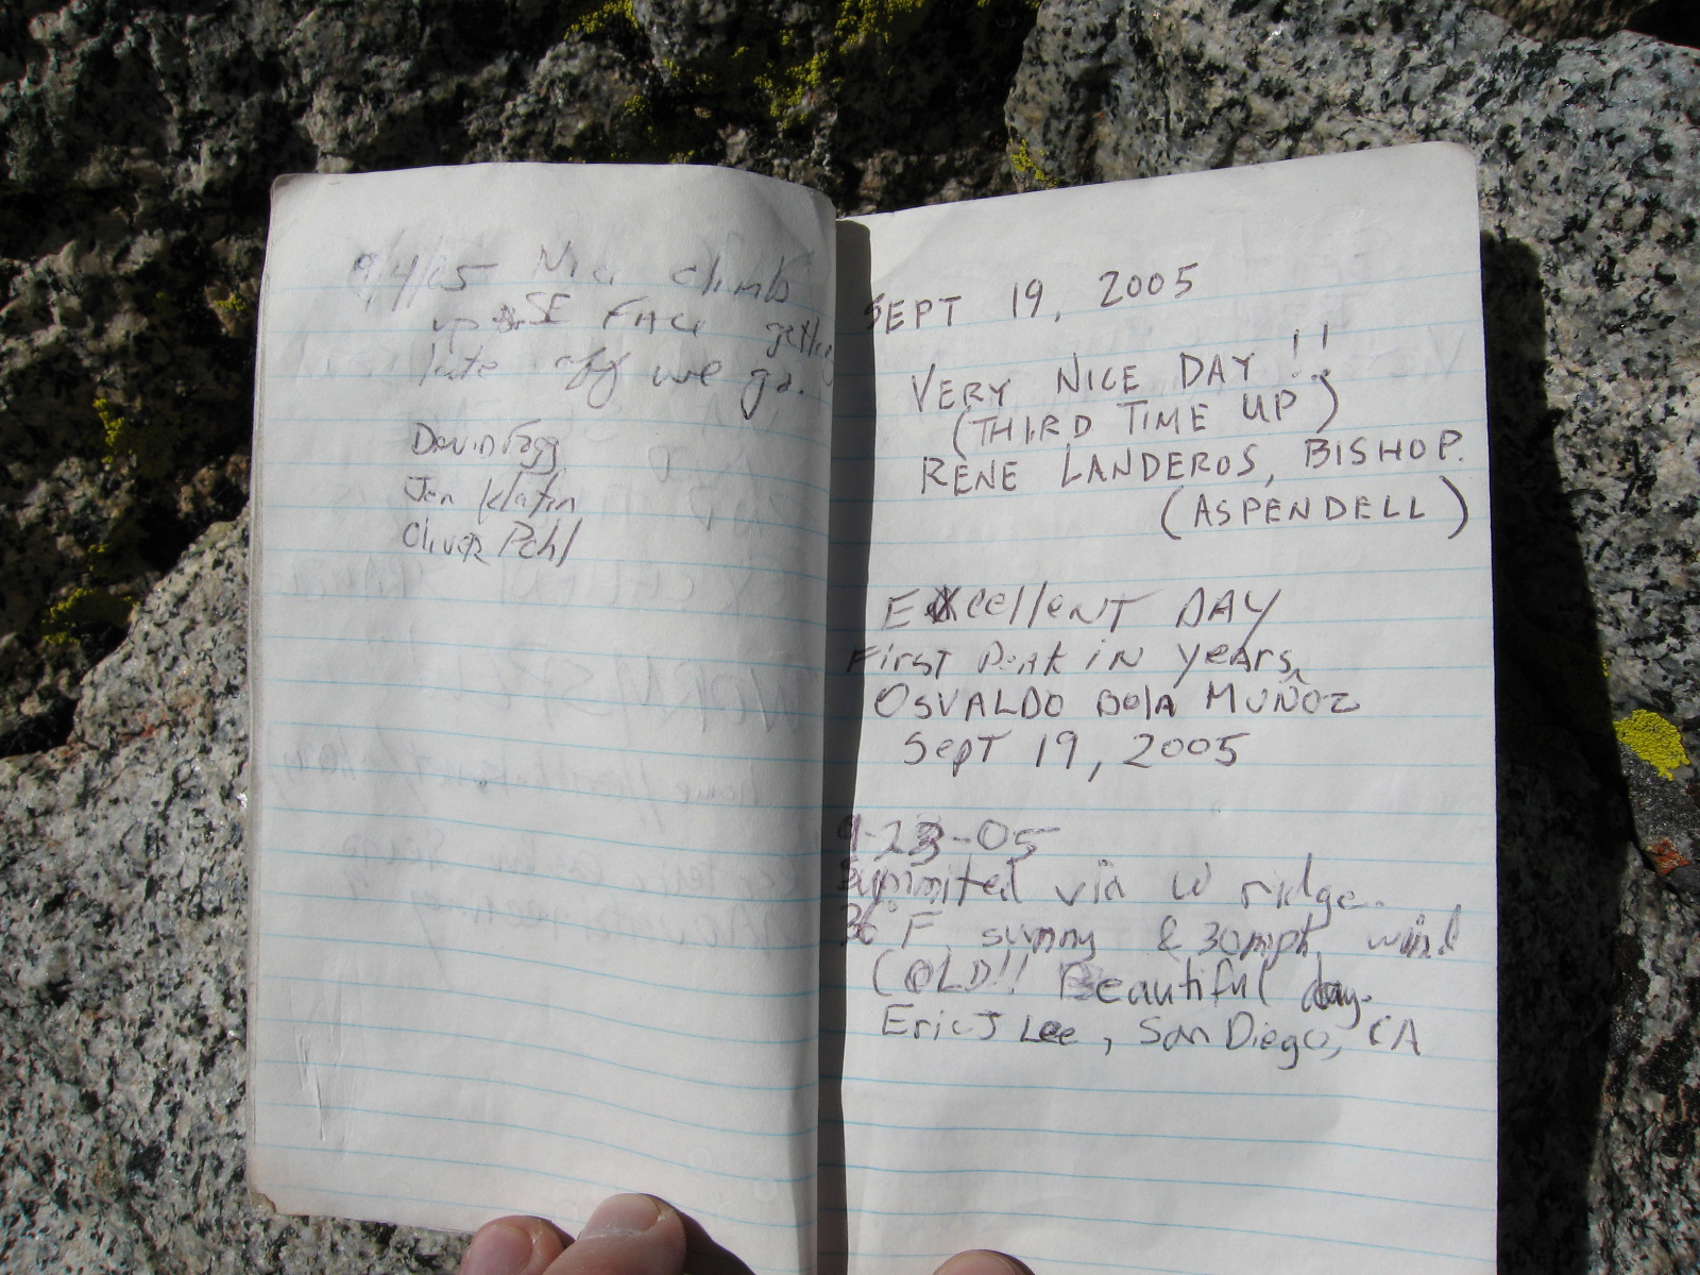 9/4/05 Nice climb
up SE FACE getting
late off we go.
Davin Fogg
Jen Klafin
Oliver Pahl
SEPT 19, 2005
VERY NICE DAY!!
(THIRD TIME UP)
RENE LANDEROS, BISHOP.
(ASPENDELL)
Excellent DAY
First Peak in years,
OSVALDO Bola MUÑOZ
Sept 19, 2005
9-23-05
Summited via W ridge.
36°F sunny & 30mph wind
COLD!! Beautiful day.
Eric J Lee, San Diego, CA